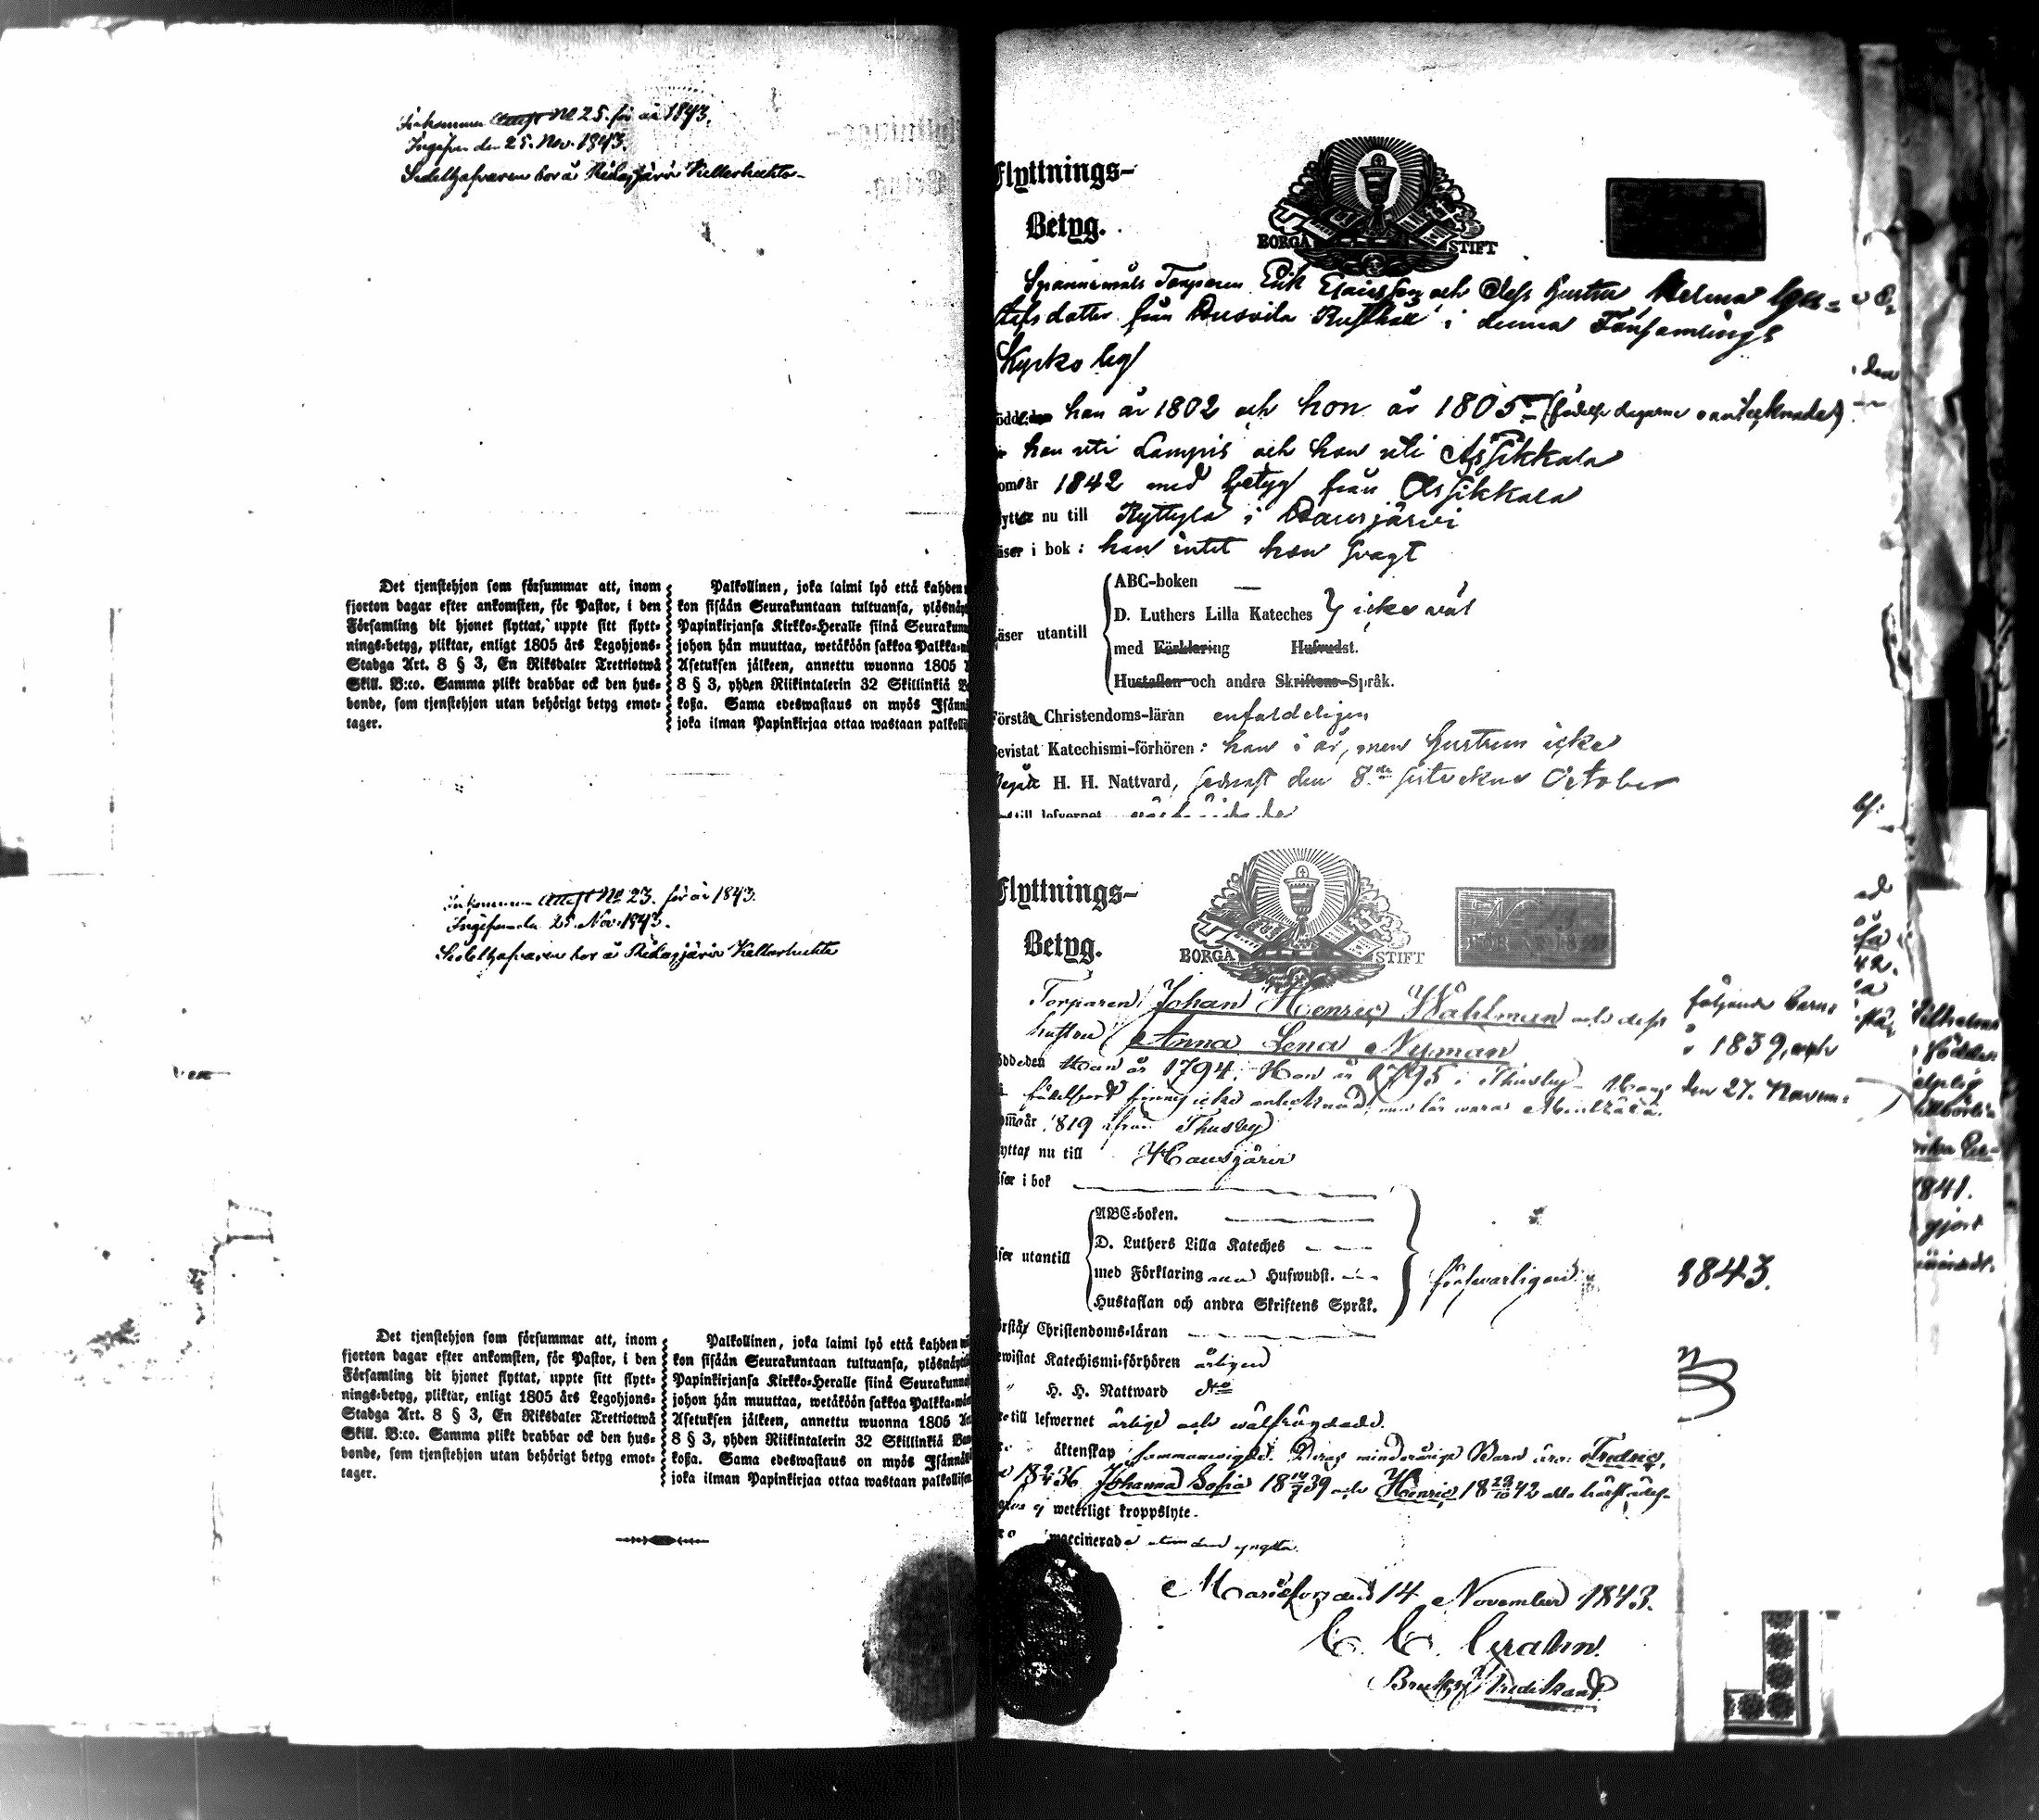 Inkommen Attest No 25. för år 1843.
Ingifven den 25. Nov. 1843.
Sedelhafvaren bor å Ridasjärvi
Det tjenstehjon som försummar att, inom
fjorton dagar efter ankomsten, för Pastor, i den
Församling dit hjonet flyttat, uppte sitt flytt-
nings-betyg, pliktar, enligt 1805 års Legohjons-
Stadga Art. 8 § 3, En Riksdaler Trettiotwå
Skill. B:co. Samma plikt drabbar ock den hus-
bonde, som tjenstehjon utan behörigt betyg emot-
tager.
Palkollinen, joka laimi lyö että kahden
kon sisään Seurakuntaan tultuansa, ylösnäyt
Papinkirjansa Kirkko-Heralle siinä Seurakun
johon hän muuttaa, wetäköön sakkoa Palkka-
Asetuksen jälkeen, annettu wuonna 1805
8 § 3, yhden Riikintalerin 32 Skillinkiä
koßa. Sama edeswastaus on myös Isänn
joka ilman Papinkirjaa ottaa wastaan palkolli
Inkommen Attest No 23. för år 1843.
Ingifven den 25. Nov. 1843.
Sedelhafvaren bor å Ridasjärvi
Det tjenstehjon som försummar att, inom
fjorton dagar efter ankomsten, för Pastor, i den
Församling dit hjonet flyttat, uppte sitt flytt-
nings-betyg, pliktar, enligt 1805 års Legohjons-
Stadga Art. 8 § 3, En Riksdaler Trettiotwå
Skill. B:co. Samma plikt drabbar ock den hus-
bonde, som tjenstehjon utan behörigt betyg emot-
tager.
Palkollinen, joka laimi lyö että kahden
kon sisään Seurakuntaan tultuansa, ylösnäyt
Papinkirjansa Kirkko-Heralle siinä Seurakunna
johon hän muuttaa, wetäköön sakkoa Palkka-
Asetuksen jälkeen, annettu wuonna 1805
8 § 3, yhden Riikintalerin 32 Skillinkiä
koßa. Sama edeswastaus on myös Isännäl
joka ilman Papinkirjaa ottaa wastaan palkollise
Flyttnings-
Betyg.
BORGÅ STIFT
Torparen Erik och dess hustru Helena Gus=
tafsdotter från Rusthåll i denna Församlings
Kyrkoby
född den han år 1802 och hon år 1805 (födelse dagarne o antecknade)
han uti Lampis och hon uti Assikkala
om år 1842 med betyg från Assikkala
flyttar nu till Ryttylä i Hausjärvi
läser i bok: han intet hon svagt
läser utantill
ABC-boken —
D. Luthers Lilla Kateches } icke väl
med Förklaring Hufvudst.
Hustaflan och andra Skriftens Språk.
Förstår Christendoms-läran enfaldeligen
Bevistat Katechismi-förhören: han i år, men hustrun icke
Begått H. H. Nattvard, sednast den 8de sistvekne October
till lefvernet
Flyttnings-
Betyg.
BORGÅ STIFT
Torparen Johan Henric Wahlman och dess
hustru Anna Lena Nyman
född den Han år 1794. Hon år 1795 i Thusby
om år 1819 från Thusby
flyttar nu till Hausjärvi
läser i bok
läser utantill
ABC-boken.
D. Luthers Lilla Kateches
med Förklaring Hufwudst.
Hustaflan och andra Skriftens Språk.
försvarligen
Förstår Christendoms-läran
Bewistat Katechismi-förhören årligen
" H. H. Nattward do
till lefwernet ärlige och wälfrägdade.
äktenskap sammanwigde. Deras minderårige Barn äro: Fredric,
1836 Johanna Sofia 1839 och Henric 1842 alla
weterligt kroppslyte.
waccinerade utom den yngsta.
Mariefors den 14 November 1843.
C. C. Grahn.
Bruks Predikant.
följande barn:
1839, och
den 27. Novem=
1843.